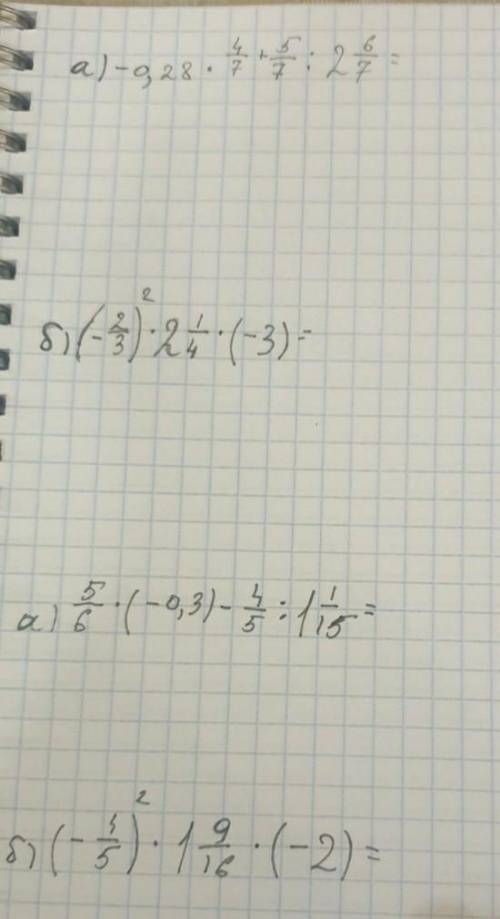 а) -0,28 · 4/7 + 5/7 : 2 6/7 =
б) (-2/3)² · 2 1/4 · (-3) =
а) 5/6 · (-0,3) - 4/5 : 1 1/15 =
б) (-4/5)² · 1 9/16 · (-2) =